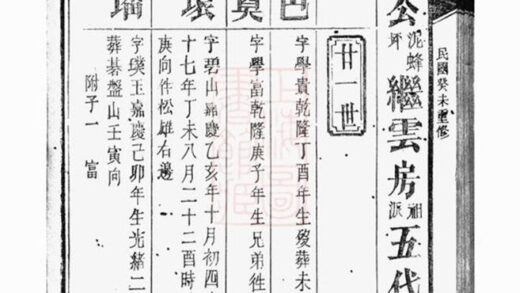 民國癸未重修
公 泥蜂坪 繼雲房 祖派 五代
廿一世
字學貴乾隆丁酉年生歿葬未
字學富乾隆庚子年生兄弟徃
字碧山嘉慶乙亥年十月初四
十七年丁未八月二十二酉時
庚向件松雄右邊
字璞玉嘉慶己卯年生光緒二
葬碁盤山壬寅向
附子一 富